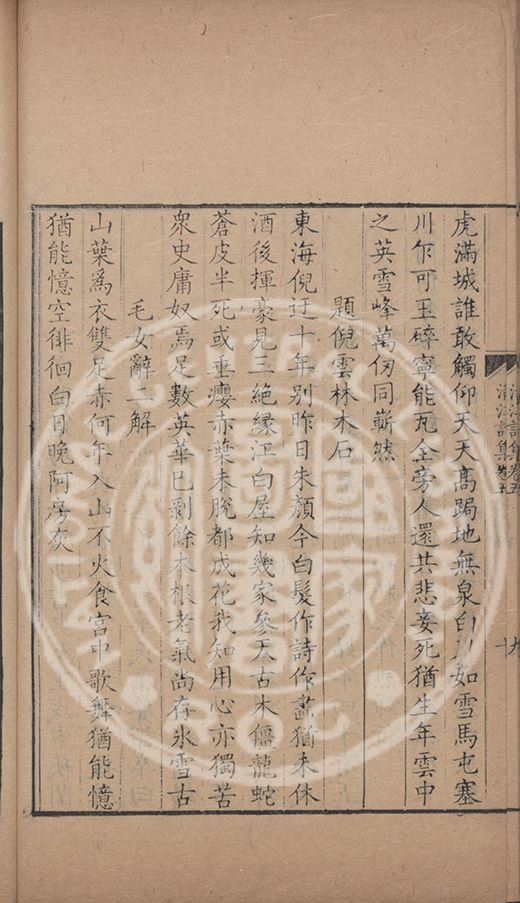 清江詩集卷五
虎滿城誰敢觸仰天天髙跼地無泉白刃如雪馬屯塞
川乍可玉碎寧能瓦全旁人還共悲妾死猶生年雲中
之英雪峰萬仞同嶄然
題倪雲林木石
東海倪迂十年别昨日朱顏今白髮作詩作畫猶未休
酒後揮豪見三絶縁江白屋知幾家參天古木僵龍蛇
蒼皮半死或垂癭赤葉未脱都成花我知用心亦獨苦
衆史庸奴焉足數英華已剥餘本根老氣尚存氷雪古
毛女辭二解
山葉爲衣雙足赤何年入山不火食宫中歌舞猶能憶
猶能憶空徘徊白日晚阿房灰